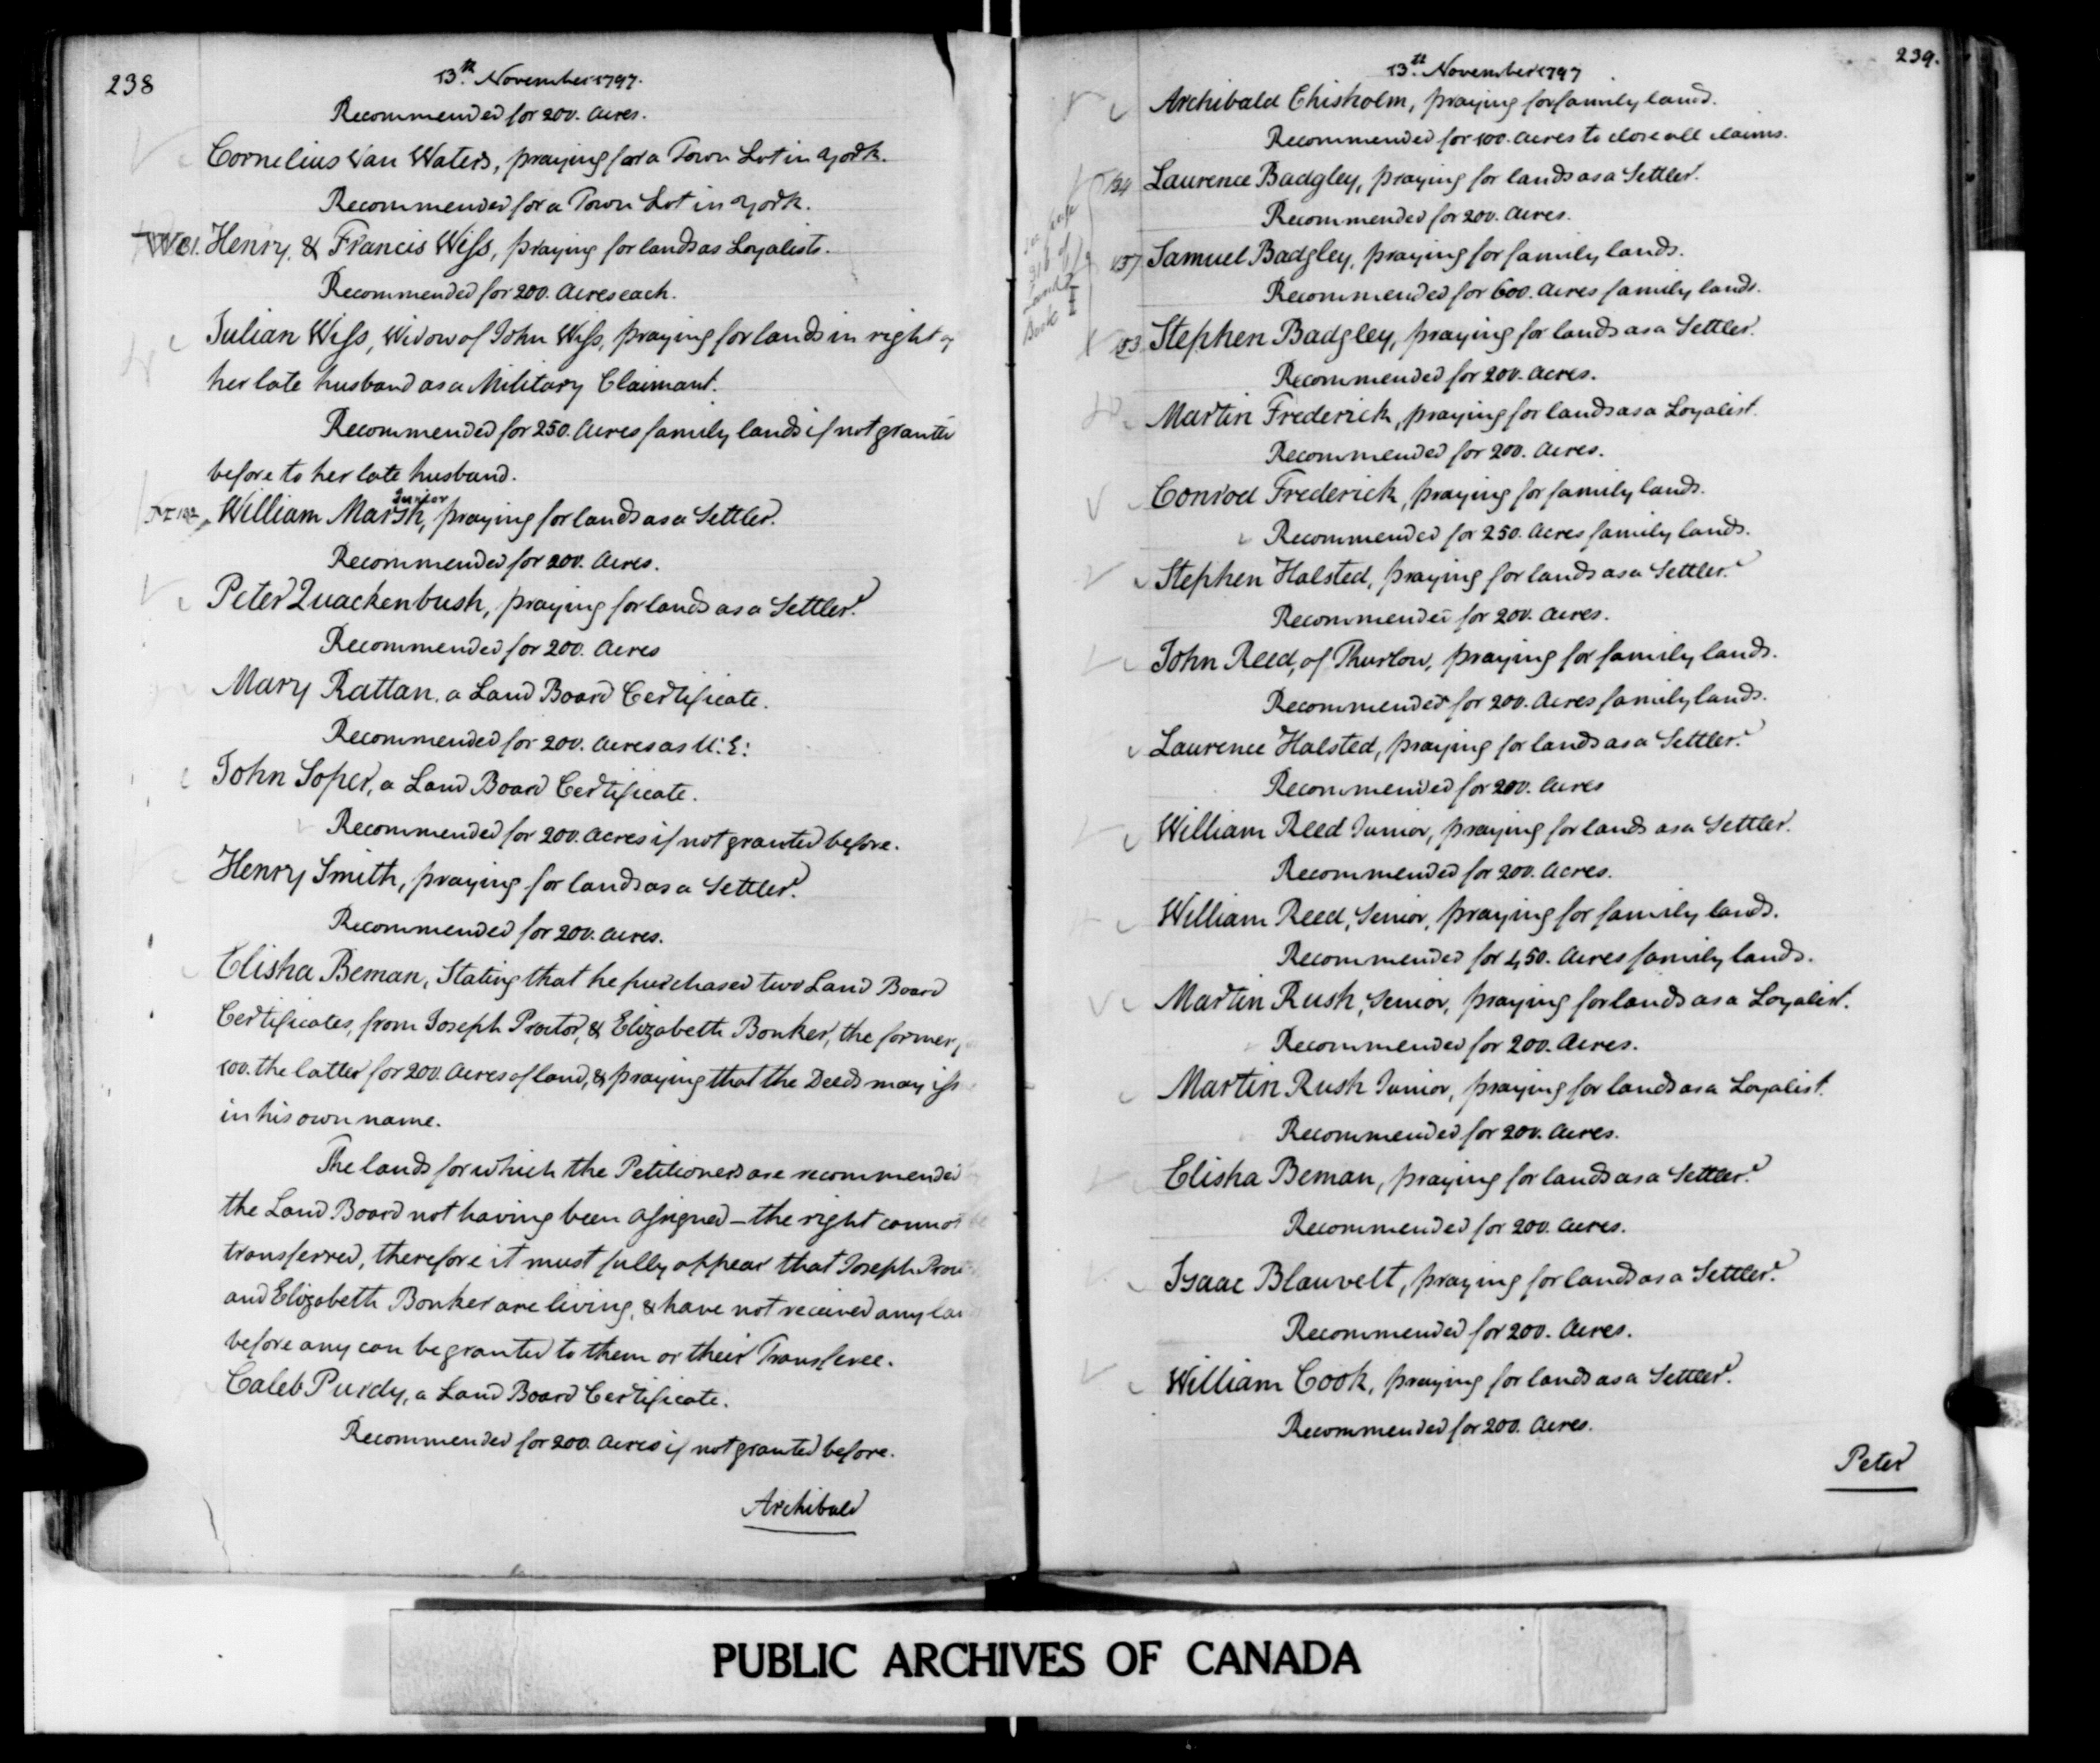 238
13th November 1797.
Recommended for 200. Acres.
Cornelius Van Waters, praying for a Town Lot in York.
Recommended for a Town Lot in York.
Henry, & Francis Wiſs, praying for lands as Loyalists.
Recommended for 200. Acres each.
Julian Wiſs, Widow of John Wiſs, praying for lands in right of
her late husband as a Military Claimant.
Recommended for 250. Acres family lands if not granted
before to her late husband.
William Marsh, Junior praying for lands as a Settler.
Recommended for 200. Acres.
Peter Quackenbush, praying for lands as a Settler.
Recommended for 200. Acres
Mary Rattan, a Land Board Certificate.
Recommended for 200. Acres as U: E:
John Soper, a Land Board Certificate.
Recommended for 200. Acres if not granted before.
Henry Smith, praying for lands as a Settler.
Recommended for 200. Acres.
Elisha Beman, Stating that he purchased two Land Board
Certificates, from Joseph Proctor, & Elizabeth Bonker, the former,
100. the latter for 200. Acres of land, & praying that the Deeds may iſs
in his own name.
The lands for which the Petitioners are recommended
the Land Board not having been aſsigned – the right cannot be
transferred, therefore it must fully appear that Joseph Proc
and Elizabeth Bonker are living, & have not received any lan
before any can be granted to them or their Transferee.
Caleb Purdy, a Land Board Certificate.
Recommended for 200. Acres if not granted before.
Archibald
239.
13th November 1797
Archibald Chisholm, praying for family lands.
Recommended for 100. Acres to close all claims.
Laurence Badgley, praying for lands as a Settler.
Recommended for 200. Acres.
see page
218 of
Land
Book I
Samuel Badgley, praying for family lands.
Recommended for 600. Acres family lands.
Stephen Badgley, praying for lands as a Settler.
Recommended for 200. Acres.
Martin Frederick, praying for lands as a Loyalist.
Recommended for 200. Acres.
Conrod Frederick, praying for family lands.
Recommended for 250. Acres family lands.
Stephen Halsted, praying for lands as a Settler.
Recommended for 200. Acres.
John Reed, of Thurlow, praying for family lands.
Recommended for 200. Acres family lands.
Laurence Halsted, praying for lands as a Settler.
Recommended for 200. Acres
William Reed Junior, praying for lands as a Settler.
Recommended for 200. Acres.
William Reed, Senior, praying for family lands.
Recommended for 450. Acres family lands.
Martin Rush, Senior, praying for lands as a Loyalist.
Recommended for 200. Acres.
Martin Rush Junior, praying for lands as a Loyalist.
Recommended for 200. Acres.
Elisha Beman, praying for lands as a Settler.
Recommended for 200. Acres.
Isaac Blauvelt, praying for lands as a Settler.
Recommended for 200. Acres.
William Cook, praying for lands as a Settler.
Recommended for 200. Acres.
Peter
PUBLIC ARCHIVES OF CANADA